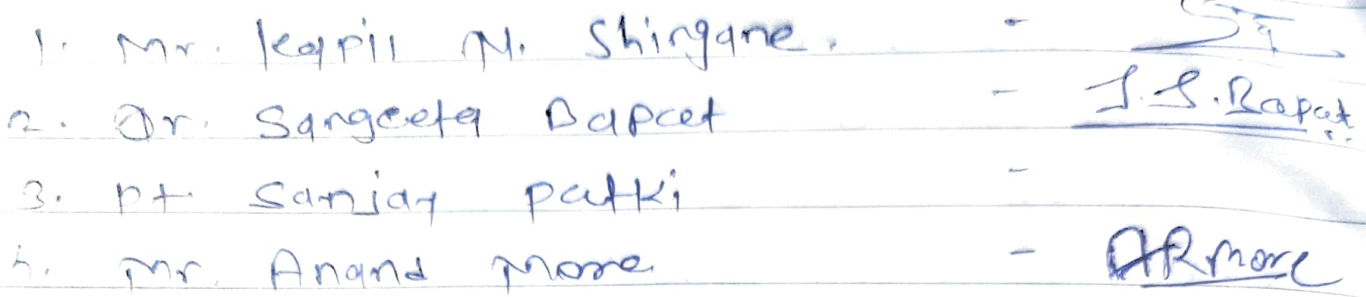 1. Mr. Kapil N. Shingane. -
2. Dr. Sangeeta Bapat - S.S.Bapat
3. Pt. Sanjay Patki -
4. Mr. Anand More - ARMore